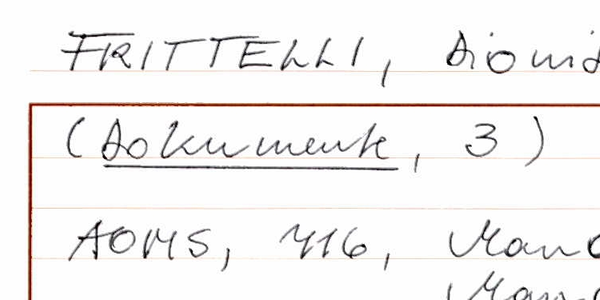 FRITTELLI, Dionis
(Dokumente, 3)
AOMS, 416, Mand
Mand